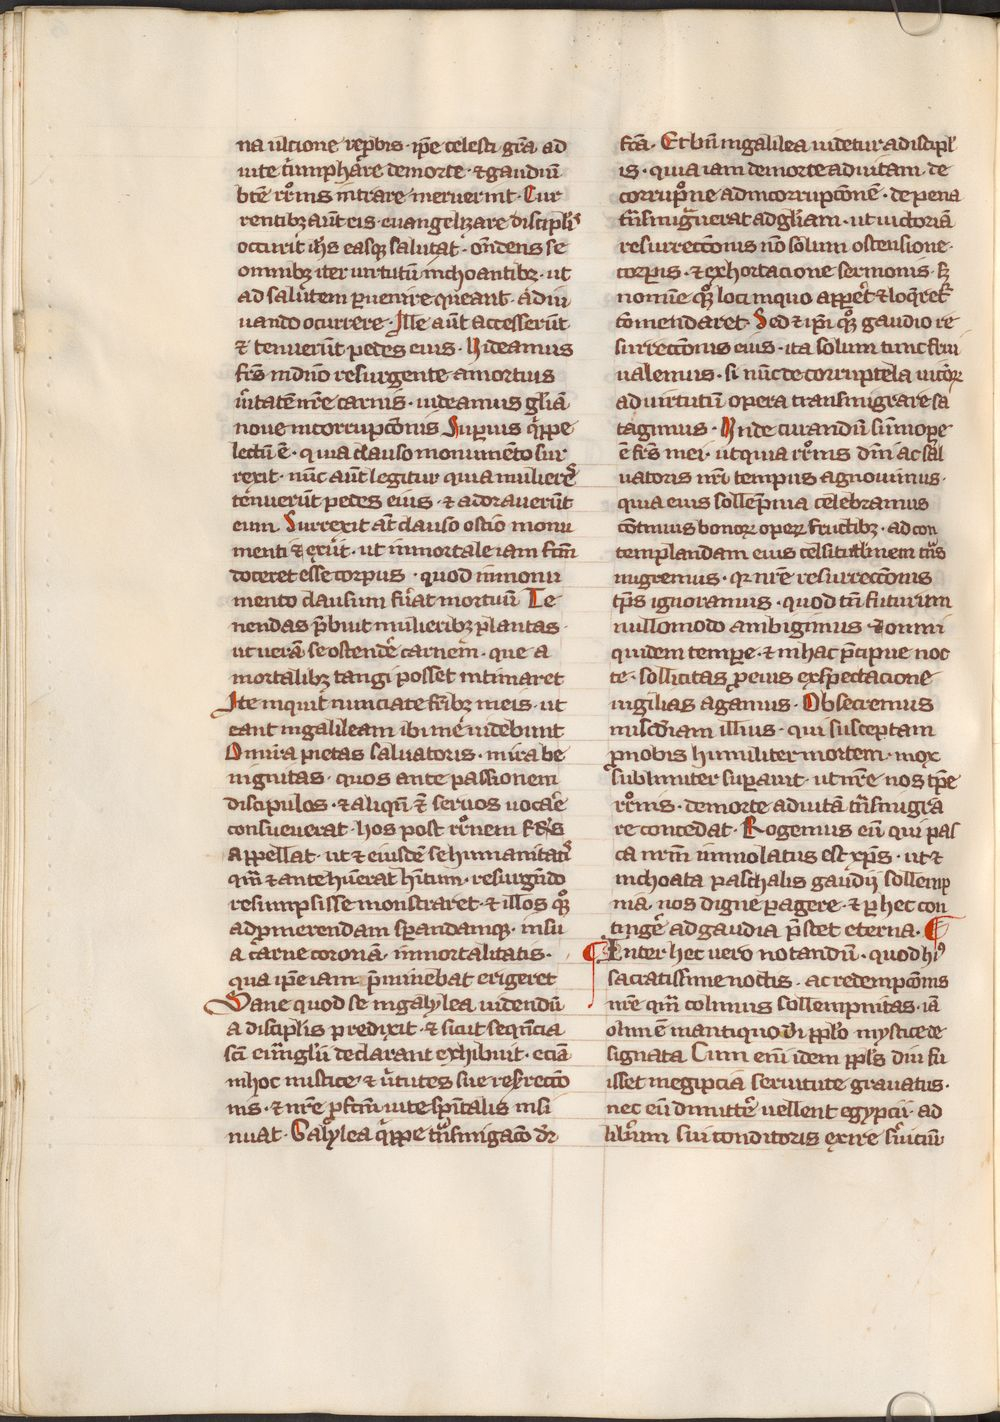 na ulcione rep̱bis · ip̄e celesti gr̄a ad
uite t̉umphare de morte · ⁊ gaudiū
bt̄e rr̄onis intrare meruerint · Cur
rentibꝫ aūt eis · euangelizare discipl̓is
occurit ih̄s easqꝫ salutat · on̄dens se
omnibꝫ iter uirtutū inchoantibꝫ · ut
ad salutem ꝑuenire queant · adiu
uando ocurrere · Ille aūt accesserūt
⁊ tenuerūt pedes eius · Uideamus
fr̄s in dn̄o resurgente a mortuis
u̓itatē nr̄e carnis · uideamus gl̄iā
noue incorrupcōnis Suꝑius q̓ippe
lectū ē · quia clauso monumēto sur
rexit · nūc aūt legitur quia mulieres
tenuerūt pedes eius · ⁊ adorauerūt
eum Surrexit aūt clauso ostio monu
menti ⁊ exiuit · ut inmortale iam fc̄m
doceret esse corpus · quod in monu
mento clausum fu̓at mortuū Te
nendas p̄buit mulieribꝫ plantas ·
ut uerā se ostend̓e carnem · que a
mortalibꝫ tangi posset intimaret
Ite inquit nunciate fr̄ibꝫ meis · ut
eant in galileam ibi me uidebunt
O mira pietas saluatoris · mira be
nignitas · quos ante passionem
discipulos · ⁊ aliqn̄ ⁊ seruos uocar̓e
consueuerat · hos post rr̄onem fr̄es
appellat · ut ⁊ eiusdē se humanitat̓is
qm̄ ⁊ ante hu̓erat h̄itum · resurgēdo
resumpsisse monstraret · ⁊ illos qꝫ
ad ꝓmerendam sꝑandamqꝫ · in su
a carne coronā · inmortalitatis ·
qua ip̄e iam p̄minebat erigeret
Sane quod se in galylea uidendū
a discipl̓is predixit · ⁊ sicut seqn̄cia
sc̄i eūnglii declarant exhibuit · eciā
in hoc mistice · ⁊ u̓tutes sue resr̄reccō
nis · ⁊ nr̄e ꝓfc̄m uite sp̄italis insi
nuat · Galylea q̓ippe tn̄smigacō dr̄
fc̄a · Et bn̄ in galilea uidetur a discipl̓
is · quia iam de morte ad uitam · de
corrupcōne ad incorrupcōnē · de pena
tn̄smigrauerat ad gl̄iam · ut uictoriā
resurreccōnis nō solum ostensione
corꝑis · ⁊ exhortacione sermonis · sꝫ
nomīe qꝫ loci in quo appeꝛet ⁊ loq̓ret̉
cōmendaret · Sed ⁊ ip̄i qꝫ gaudio re
surreccōnis eius · ita solum tunc frui
ualemus · si nūc de corruptela uicioꝝ
ad uirtutū opera transmigrare sa
tagimus · Unde curandū sūmoꝑe
ē fr̄s mei · ut quia rr̄onis dn̄i ac sal
uatoris nr̄i tempus agnouimus ·
quia eius sollēpnia celebramus
cōtinuis bonoꝝ oꝑeꝝ fructibꝫ · ad con
templandam eius celsitudinem tn̄s
migremus · ⁊ nr̄e resurreccōnis
tp̄s ignoramus · quod tn̄ futurum
nullomodo ambigimus · ⁊ omni
quidem temp̱e · ⁊ in hac p̄cipue noc
te · sollicitas ꝑ eius exspectacione
uigilias agamus · Obsecremus
mis̄cdiam illius · qui susceptam
ꝓ nobis humiliter mortem · mox
sublimiter suꝑauit · ut nr̄e nos tp̄e
rr̄onis · de morte ad uitā tn̄smigra
re concedat · Rogemus eū qui pas
ca nr̄m immolatus est xp̄s · ut ⁊
inchoata paschalis gaudij sollemp
nia · nos digne ꝑagere · ⁊ ꝑ hec con
ting̓e ad gaudia p̄stet eterna · ¶
¶ Inter hec uero notandū · quod hui̓
sacratissime noctis · ac redempcōnis
nr̄e qm̄ colimus sollempnitas · iā
olim ē in antiquo di ppl̓o mystice de
signata Cum eni idem ppl̓s diu fu
isset in egipcia seruitute grauatus ·
nec eū dimitt̓e uellent egypcii · ad
lib̓um sui conditoris exire s̓uiciū